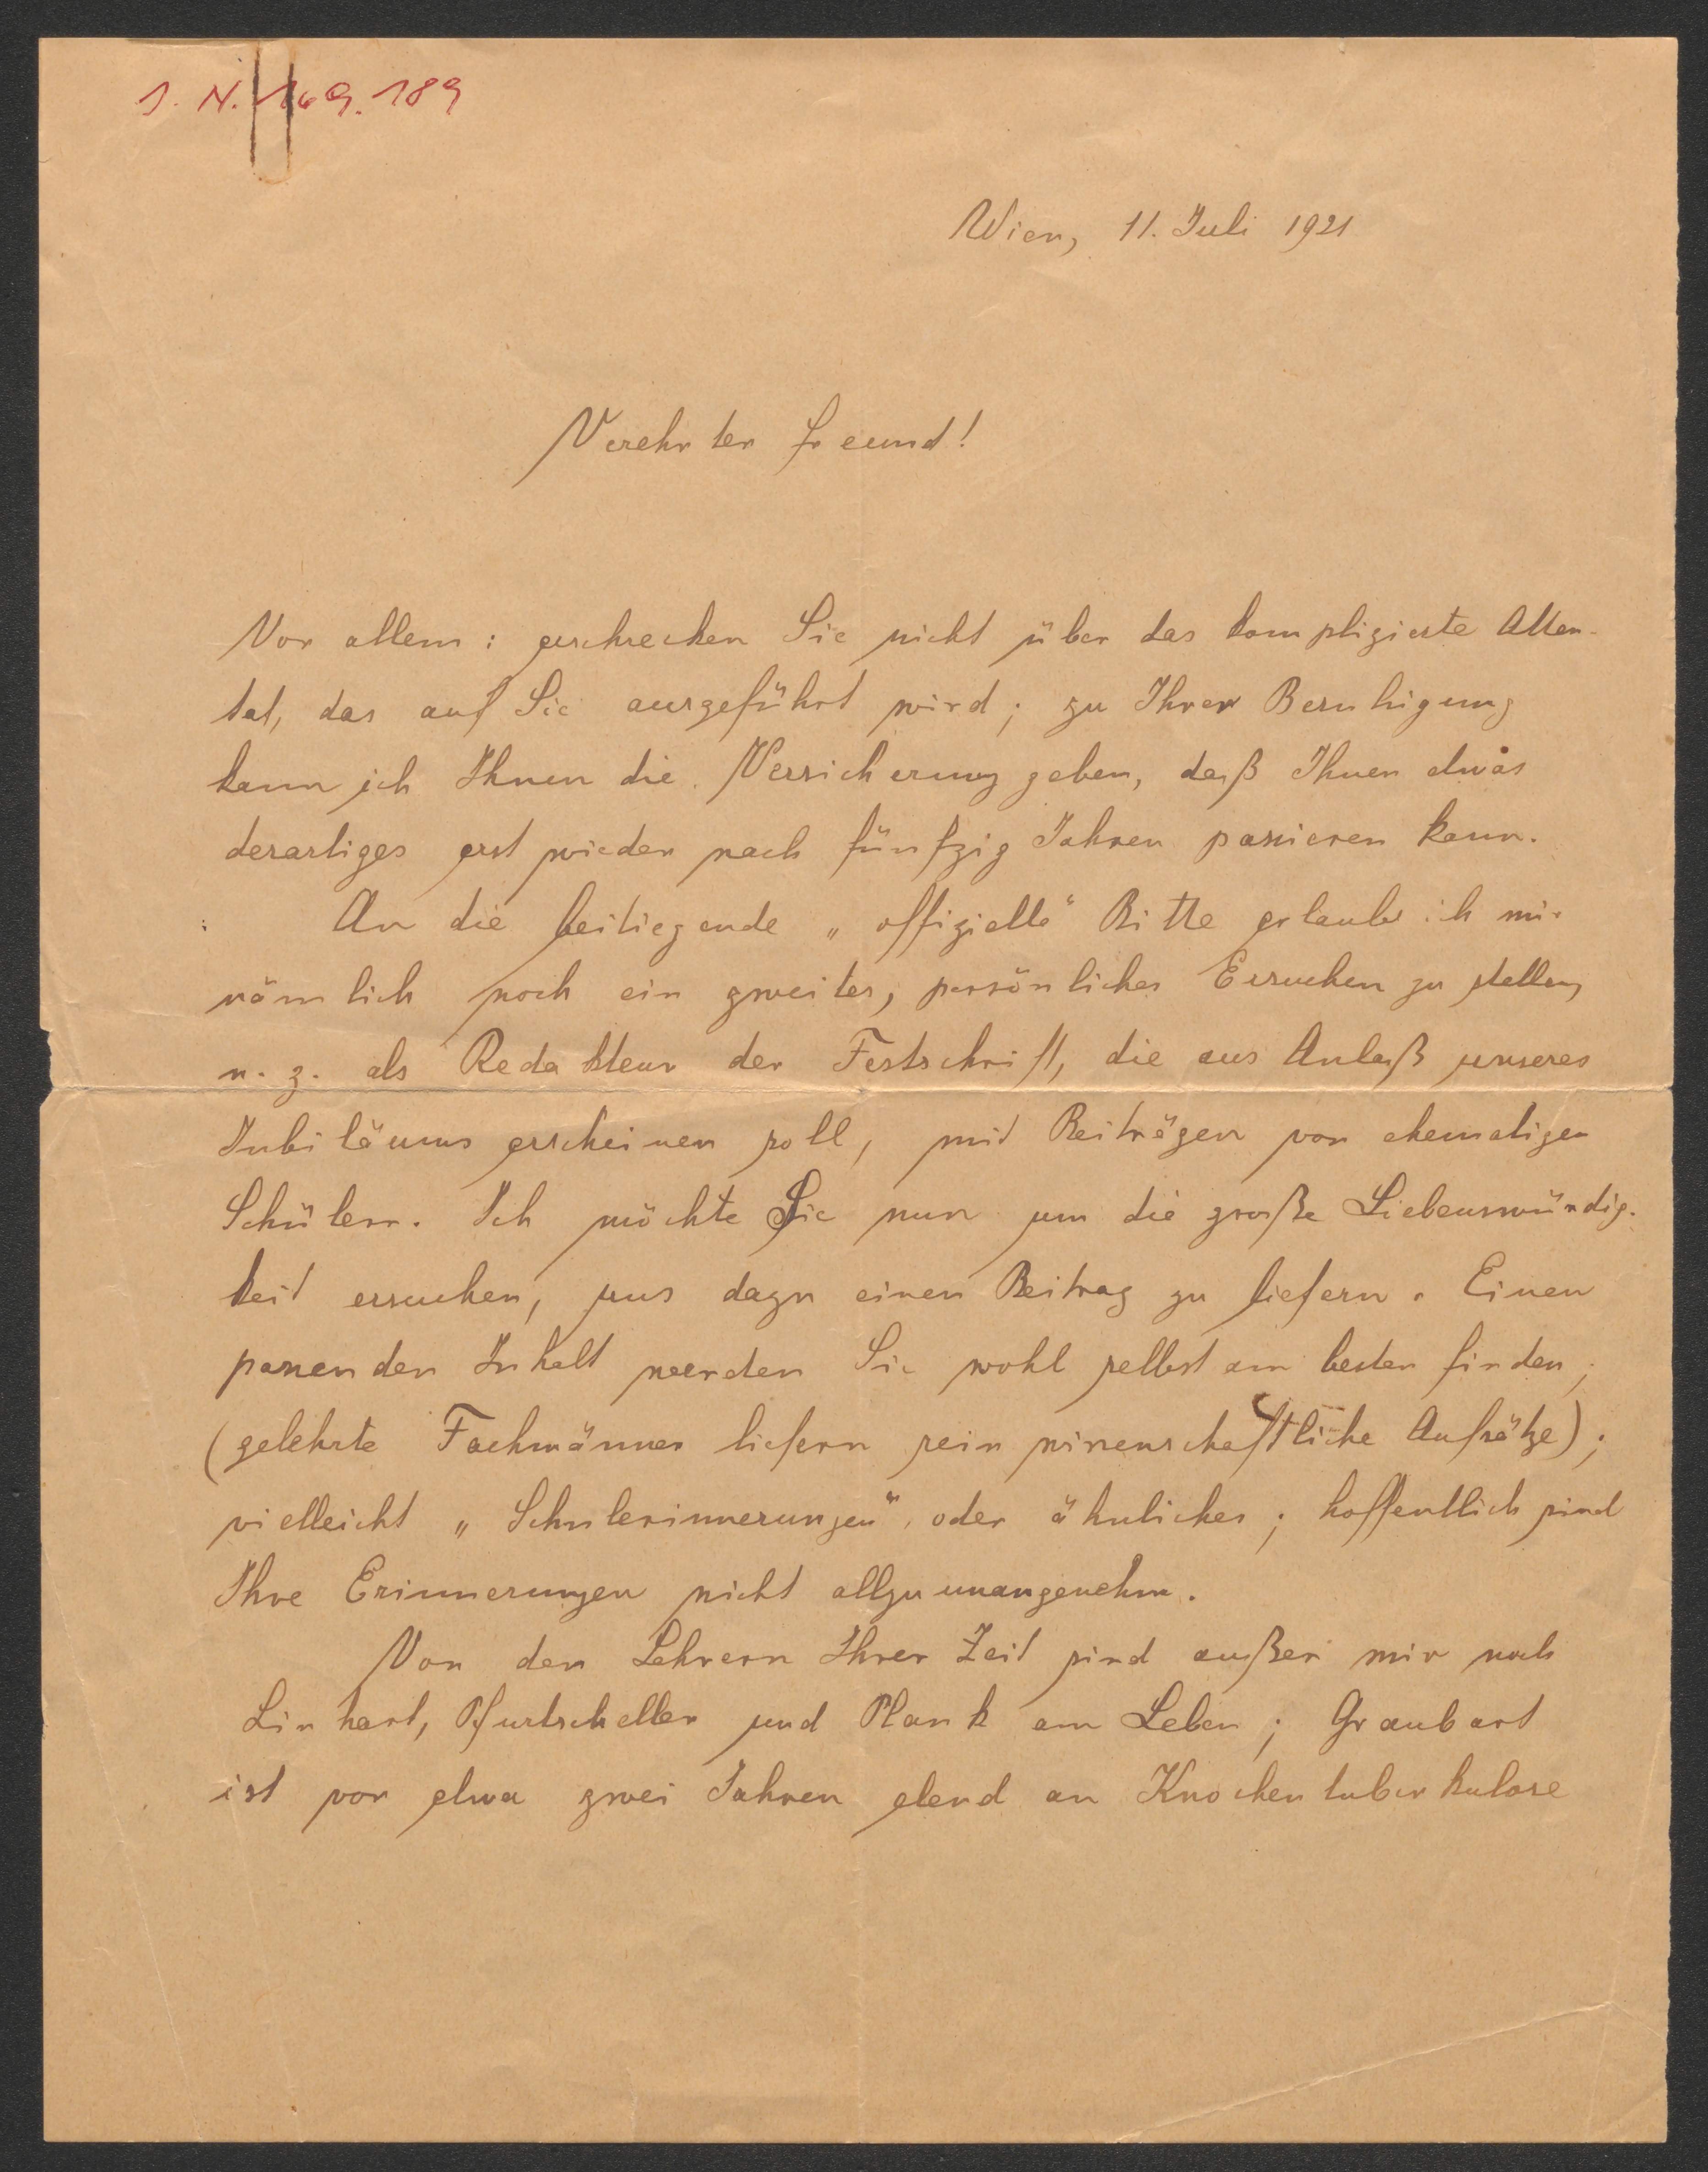 I. N. 169.189
Wien, 11. Juli 1921
Verehrter Freund!
Vor allem: erschrecken Sie nicht über das komplizierte Atten-
tat, das auf Sie ausgeführt wird; zu Ihrer Beruhigung
kann ich Ihnen die Versicherung geben, daß Ihnen etwas
derartiges erst wieder nach fünfzig Jahren passieren kann.
An die beiliegende „offizielle“ Bitte erlaube ich mir
nämlich noch ein zweites, persönliches Ersuchen zu stellen,
u. z. als Redakteur der Festschrift, die aus Anlaß unseres
Jubiläums erscheinen soll, mit Beiträgen von ehemaligen
Schülern. Ich möchte Sie nun um die große Liebenswürdig-
keit ersuchen, uns dazu einen Beitrag zu liefern. Einen
passenden Inhalt werden Sie wohl selbst am besten finden;
(gelehrte Fachmänner liefern rein wissenschaftliche Aufsätze);
vielleicht „Schulerinnerungen“, oder ähnliches; hoffentlich sind
Ihre Erinnerungen nicht allzu unangenehm.
Von den Lehrern Ihrer Zeit sind außer mir noch
Linhart, Pfurtscheller und Plank am Leben; Graubart
ist vor etwa zwei Jahren elend an Knochentuberkulose